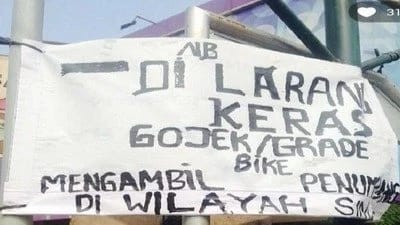 31
NB
DI LARANG
KERAS
GOJEK/GRADE
BIKE
MENGAMBIL
DI WILAYAH